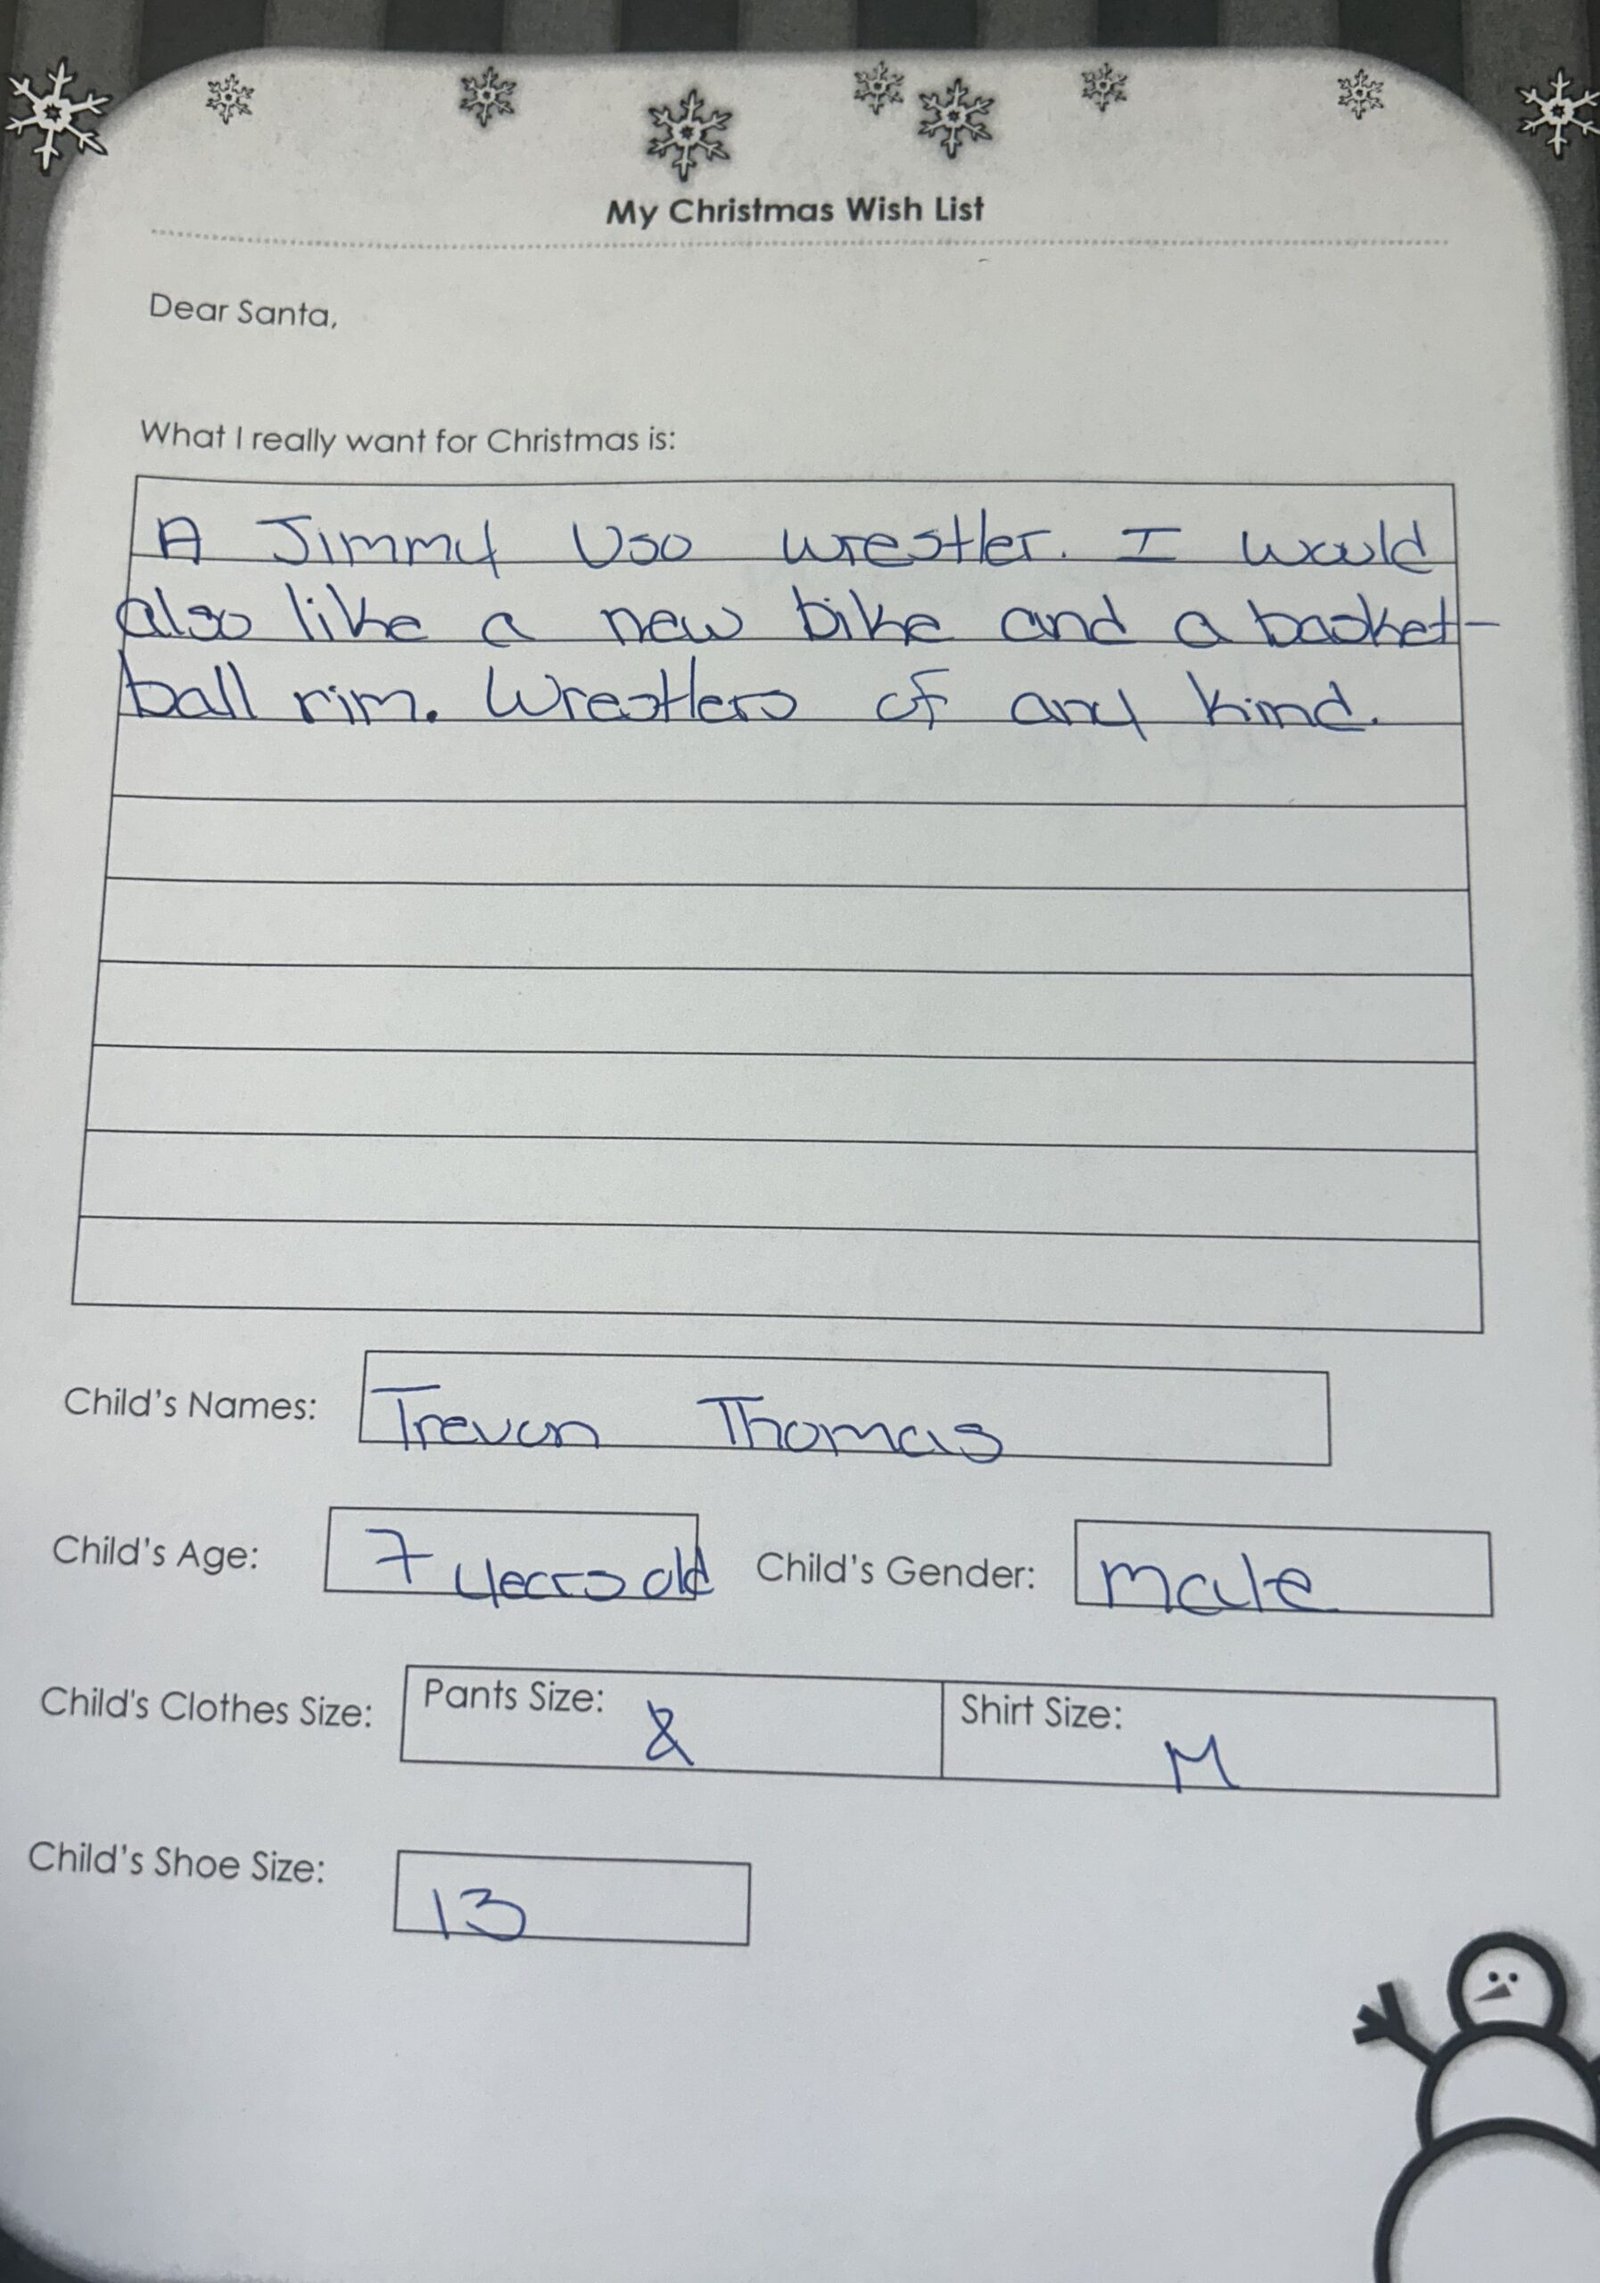 My Christmas Wish List
Dear Santa,
What I really want for Christmas is:
A Jimmy Uso wrestler. I would
also like a new bike and a basket-
ball rim. Wrestlers of any kind.
Child's Names: Trevon Thomas
Child's Age: 7 years old Child's Gender: male
Child's Clothes Size: Pants Size: 8 Shirt Size: M
Child's Shoe Size: 13